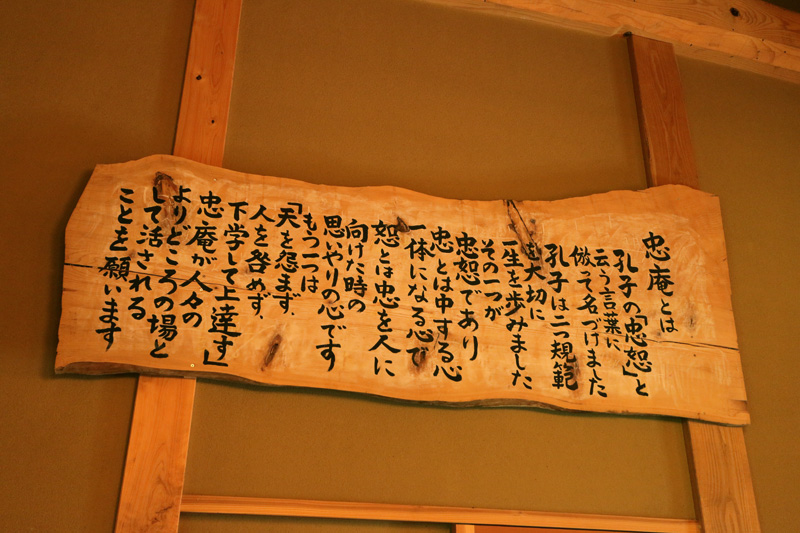 忠庵とは
孔子の「忠恕」と
云う言葉に
倣そ名づけました
孔子は二つ規範
を大切に
一生を歩みました
その一つが
忠恕であり
忠とは中する心
一体になる心で
恕とは忠を人に
向けた時の
思いやりの心です
もう一つは
「天を怨まず、
人を咎めず、
下学して上達す」
忠庵が人々の
よりどころの場と
して活される
ことを願います